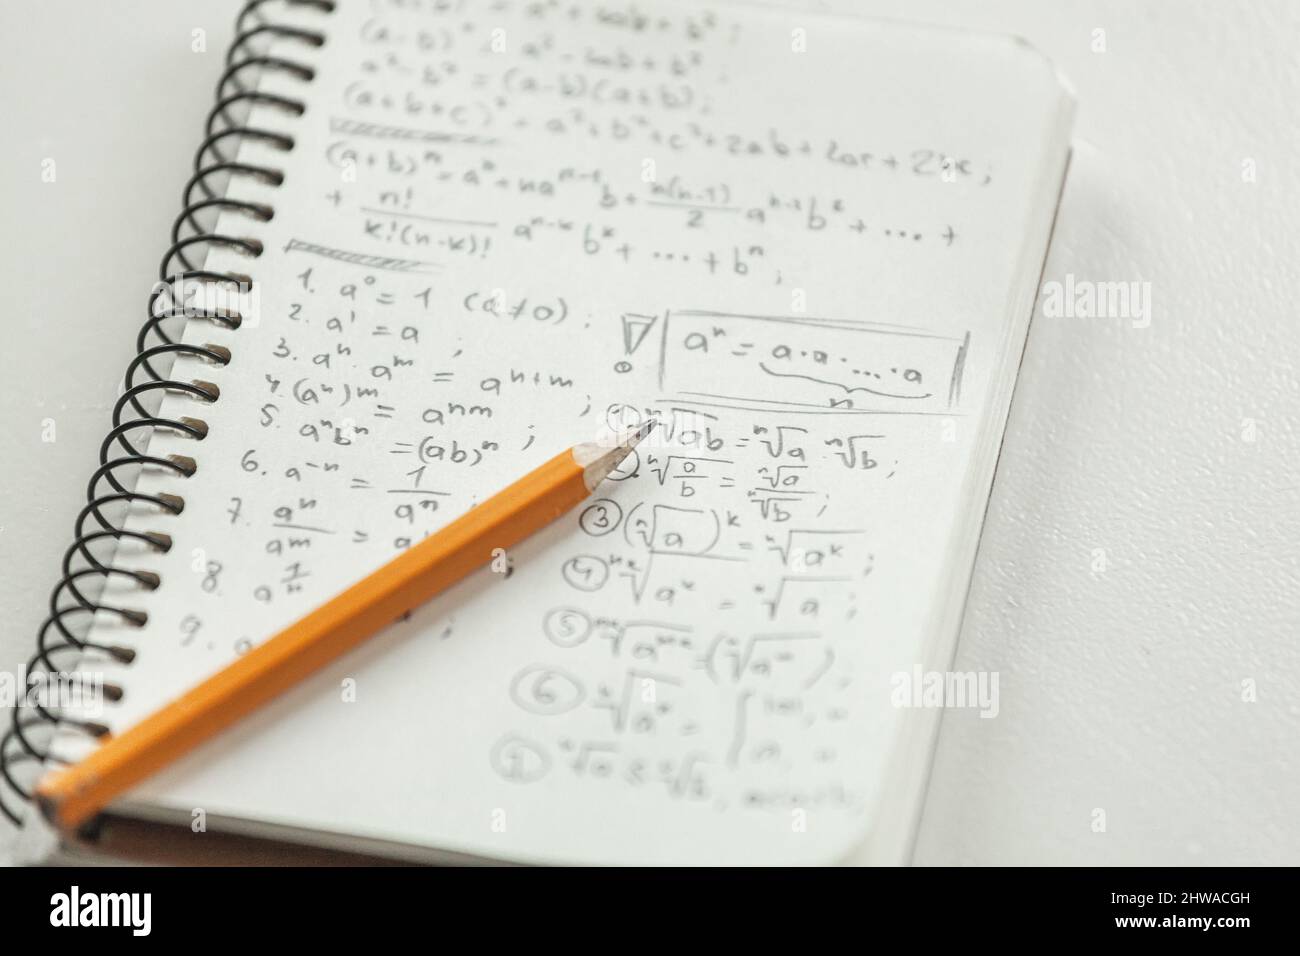 (a+b)² = a² + 2ab + b² ;
(a-b)² = a² - 2ab + b² ;
a² - b² = (a-b)(a+b);
(a+b+c)² = a²+b²+c²+2ab+2ac+2bc ;
(a+b)ⁿ = aⁿ + naⁿ⁻¹b + n(n-1)/2 aⁿ⁻²b² + ... +
+ n!/k!(n-k)! aⁿ⁻ᵏ bᵏ + ... + bⁿ ;
1. a⁰ = 1 (a ≠ 0) ;
2. a¹ = a ;
3. aⁿ · aᵐ = aⁿ⁺ᵐ ;
4. (aⁿ)ᵐ = aⁿᵐ ;
5. aⁿbⁿ = (ab)ⁿ
6. a⁻ⁿ = 1/aⁿ ;
7. aⁿ/aᵐ = a
8. a^(1/n) ;
9. a ;
! aⁿ = a·a· ... ·a
n
① ⁿ√ab = ⁿ√a · ⁿ√b ;
② ⁿ√(a/b) = ⁿ√a/ⁿ√b ;
③ (ⁿ√a)ᵏ = ⁿ√aᵏ ;
④ ⁿᵏ√aᵏ = ⁿ√a ;
⑤
⑥ ⁿ√aⁿ = { |a|,
a,
alamy
Image ID: 2HWACGH
www.alamy.com